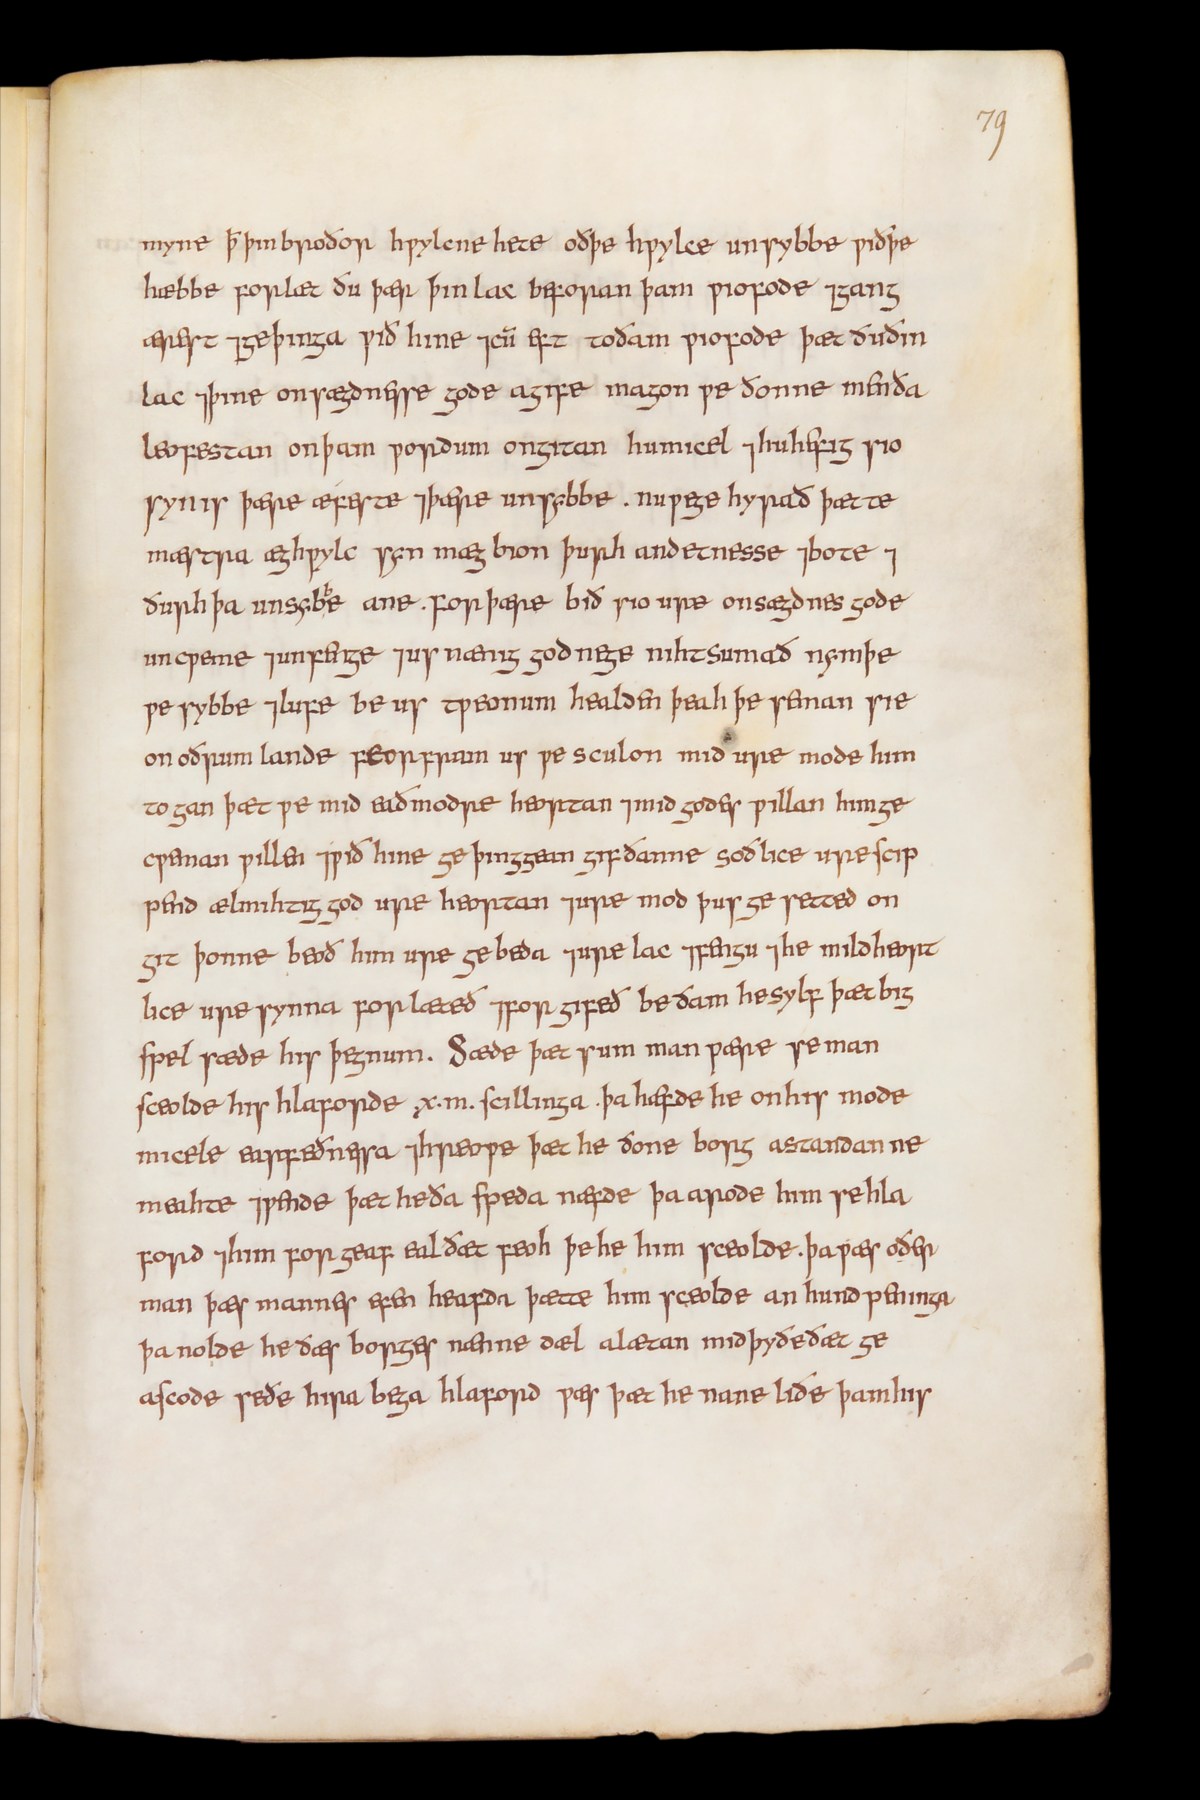 79
myne ꝥ þin broðor hƿylcne hete oðþe hƿylce unsybbe ƿið þe
hæbbe forlæt ðu þær þin lac beforan þam ƿiofode ⁊ gang
ærest ⁊ geþinga ƿið hine ⁊ cū eft to ðam ƿiofode þæt ðu ðin
lac ⁊ þine onsægdnesse gode agife magon ƿe ðonne men ða
leofestan on þam ƿordum ongitan hu micel ⁊ hu hefig sio
syn is þære æfeste ⁊ þære unsybbe . nu ƿe gehyrað þætte
mæstra æghƿylc syn mæg bion þurh andetnesse ⁊ bote ⁊
ðurh þa unsybbe ane . for þære bið sio ure onsægdnes gode
uncƿeme ⁊ unfenge ⁊ us nænig god ne genihtsumað nymþe
ƿe sybbe ⁊ lufe be us tƿeonum healden þeah þe feman sie
on oðrum lande feor fram us ƿe sculon mid ure mode him
to gan þæt ƿe mid eaðmodre heortan ⁊ mid godes ƿillan him ge
cƿeman ƿillen ⁊ ƿið hine geþinggean gif ðanne soðlice ure scip
ƿend ælmihtig god ure heortan ⁊ ure mod þus gesetted on
git þonne beoð him ure gebeda ⁊ ure lac ⁊ fengu ⁊ he mildheort
lice ure synna forlæteð ⁊ forgifeð be ðam he sylf þæt big
spel sæde his þegnum . Sæde þæt sum man ƿære se man
sceolde his hlaforde .x.m. scillinga . þa hæfde he on his mode
micele earfeðnessa ⁊ hreoƿe þæt he ðone borg astandan ne
meahte ⁊ ƿende þæt he ða speda næfde þa arode him se hla
ford ⁊ him forgeaf eal ðæt feoh þe he him sceolde . þa ƿæs oðer
man þæs mannes efen heafda þætte him sceolde an hund ƿeninga
þa nolde he ðæs borges nænne dæl alætan mid þy ðe ðæt ge
ascode se ðe hira bega hlaford ƿæs þæt he nane liðe þam his